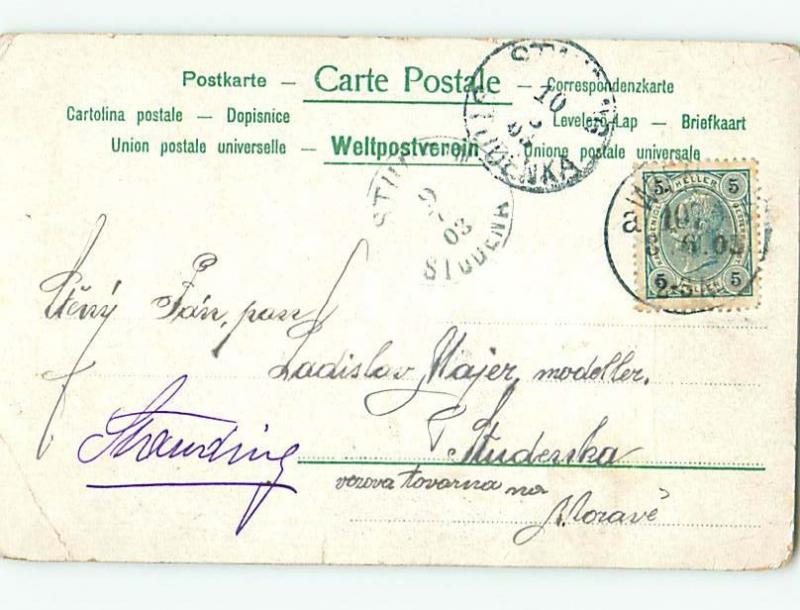 Postkarte — Carte Postale — Correspondenzkarte
Cartolina postale — Dopisnice
Levelező-Lap — Briefkaart
Union postale universelle — Weltpostverein — Unione postale universale
STAUDING
10
03
STUDENKA
9
03
STUDENKA
5 HELLER 5
5 HELLER 5
10
6 03
Ctěný Pán, pan
Ladislav Majer, modeller.
Stauding
Studenska
vozova tovarna na
Moravě